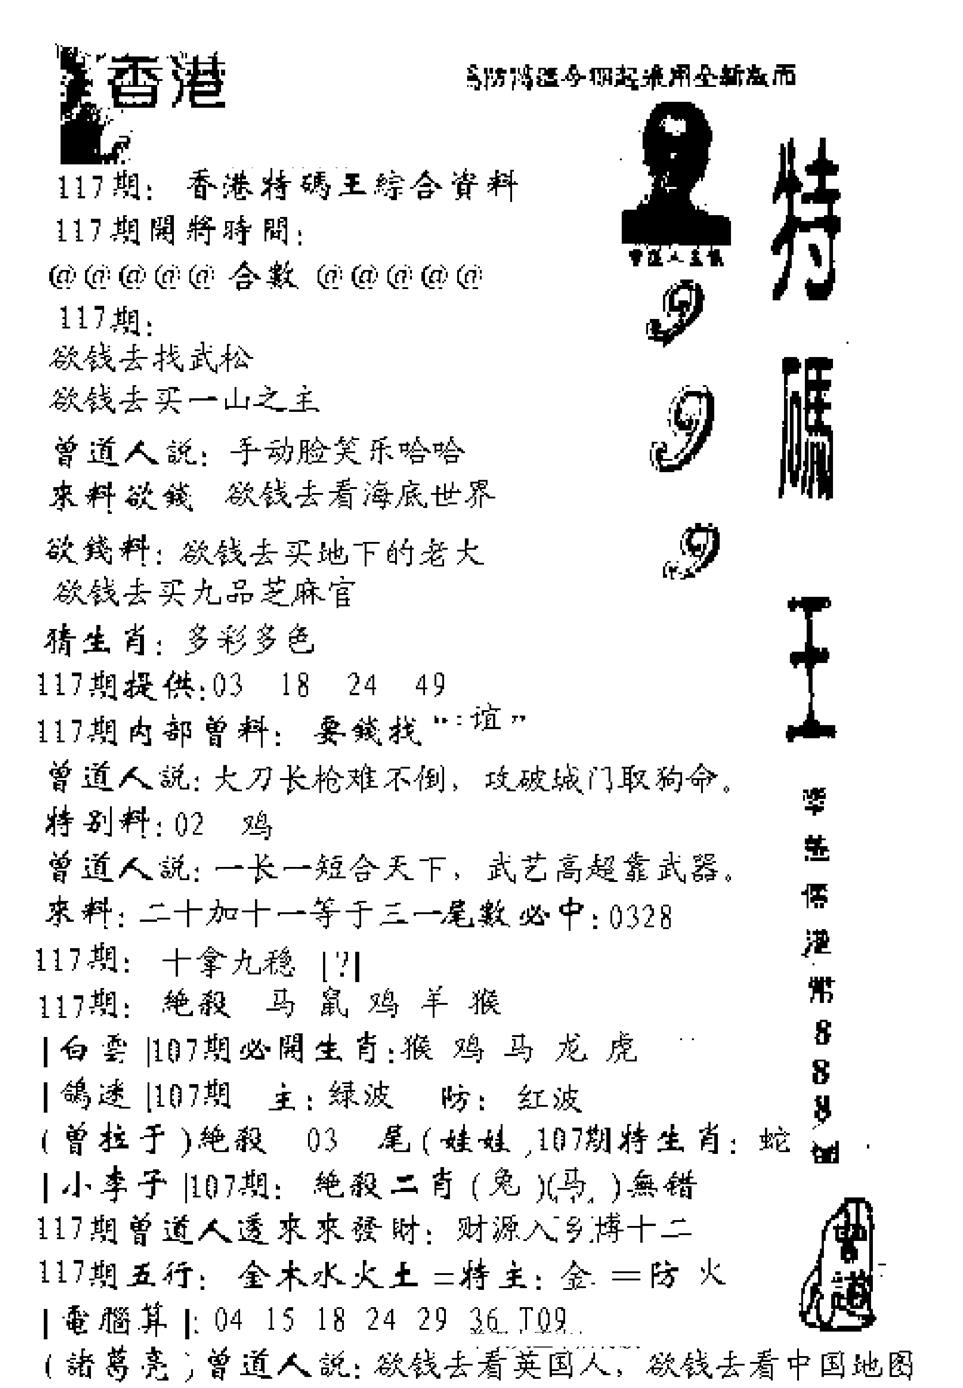 香港
117期: 香港特碼王綜合資料
117期開將時間:
@@@@@ 合數 @@@@@
117期:
欲钱去找武松
欲钱去买一山之主
曾道人説: 手动脸笑乐哈哈
來料欲錢 欲钱去看海底世界
欲錢料: 欲钱去买地下的老大
欲钱去买九品芝麻官
猜生肖: 多彩多色
117期提供:03 18 24 49
117期内部曾料: 要錢找“ 谊”
曾道人説: 大刀长枪难不倒, 攻破城门取狗命。
特别料:02 鸡
曾道人説: 一长一短合天下, 武艺高超靠武器。
來料: 二十加十一等于三一尾數必中:0328
117期: 十拿九稳 |?|
117期: 絶殺 马 鼠 鸡 羊 猴
|白雲|107期必開生肖:猴 鸡 马 龙 虎
|鴿迷|107期 主: 绿波 防: 红波
(曾拉于)絶殺 03 尾(娃娃)107期特生肖: 蛇
|小李子|107期: 絶殺二肖(兔)(马)無错
117期曾道人透來來發財: 财源入乡博十二
117期五行: 金木水火土=特主: 金 =防 火
|電腦算|: 04 15 18 24 29 36 T09
(諸葛亮)曾道人説: 欲钱去看英国人, 欲钱去看中国地图
特
碼
王
9
9
9
港
幣
8
8
8
曾
道